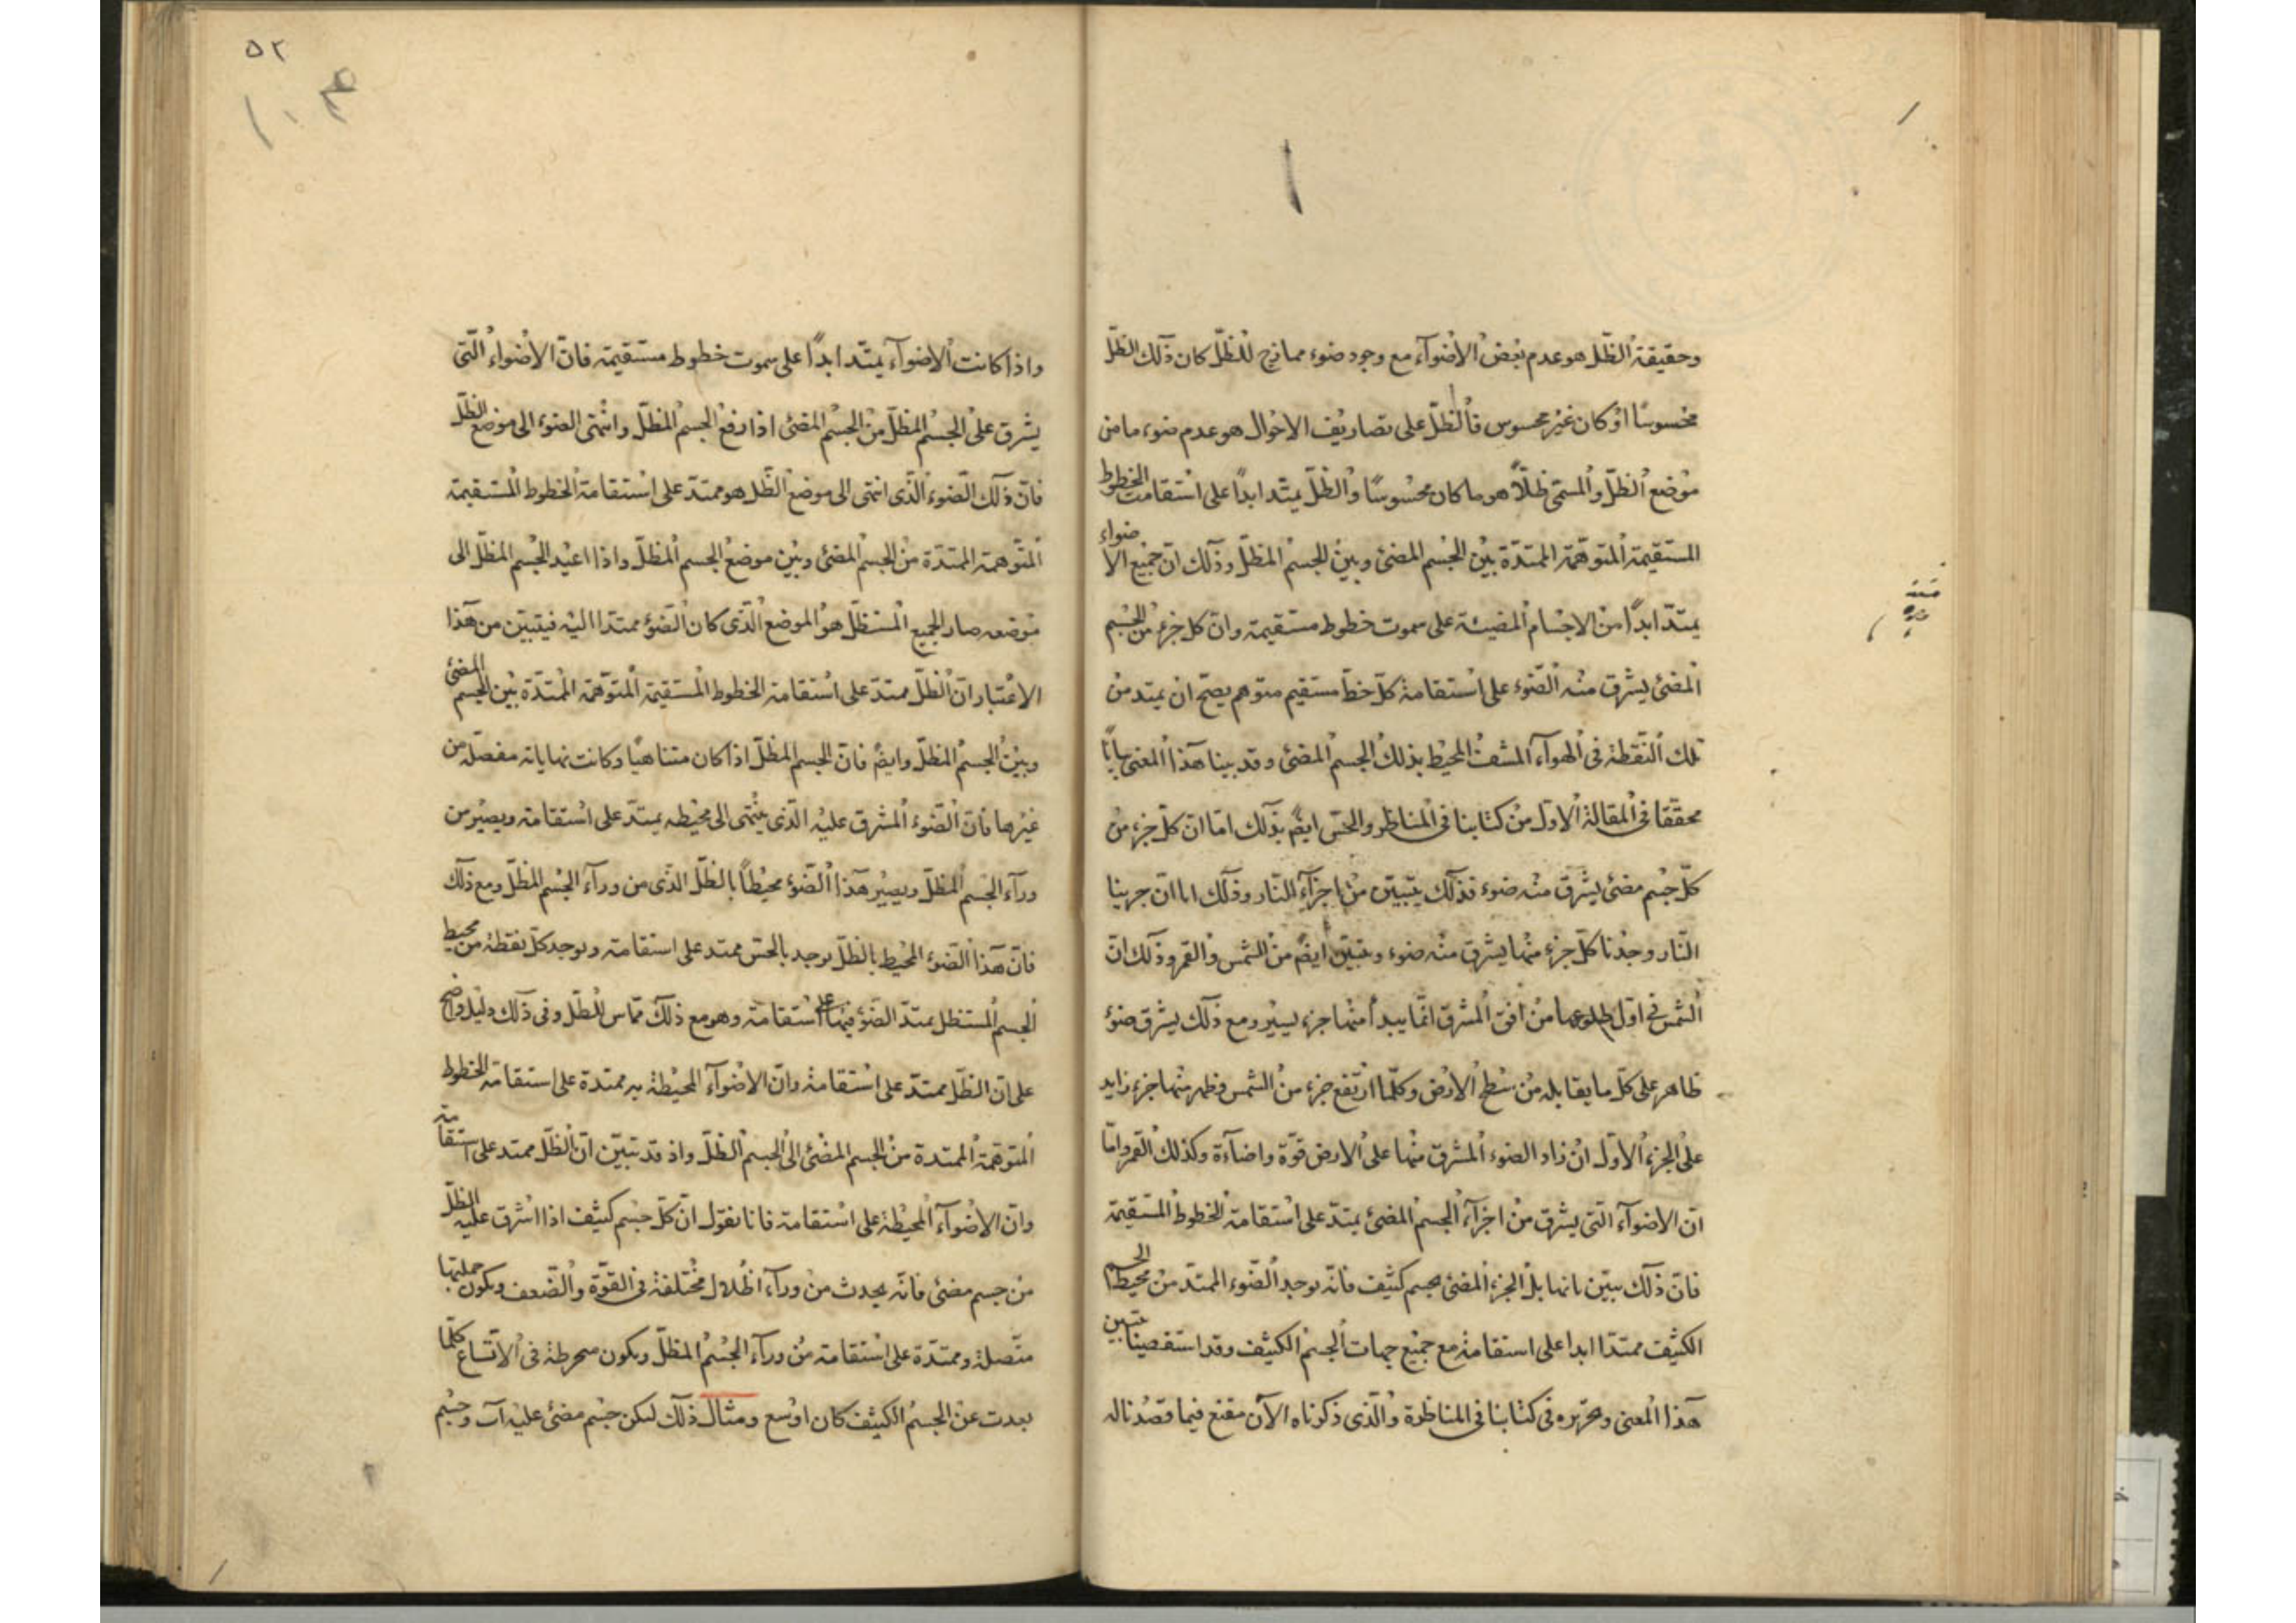 وحقيقة الظلّ هو عدم بعض الأضوآء مع وجود ضوء ممازج للظلّ كان ذلك الظلّ
محسوسًا أو كان غير محسوس فألظلّ على تصاريف الاحوال هو عدم ضوء ما من
موضع الظلّ والمسمّى ظلّاً هو ما كان محسوسًا والظلّ يمتّد ابداً على استقامت الخطوط
المستقيمة المتوهّمة الممتدّة بين الجسم المضئ وبين الجسم المظلّ وذلك انّ جميع الاضواء
يمتدّ ابداً من الاجسام المضيئة على سموت خطوط مستقيمة وانّ كل جزء من الجسم
المضئ يشرق منه الضّوء على استقامة كلّ خطّ مستقيم متوهم يصحّ ان يمتد من
تلك النّقطة فى الهوآء المشفّ المحيط بذلك الجسم المضئ وقد بينا هذا المعنى بيانًا
محققا فى المقالة الاول من كتابنا فى المناظر والحسّ ايضً بذلك امّا انّ كلّ جزء من
كلّ جسم مضئ يشرق منه ضوء فذلك يتبيّن من اجزآء النّار وذلك اما انّ جربنا
النّار وجدنا كلّ جزء منها يشرق منه ضوء وتبيّن ايضً من الشمس والقمر وذلك انّ
الشمس فى اوّل طلوعها من أفق المشرق انّما يبدأ منها جزء يسير ومع ذلك يشرق ضوء
ظاهر على كلّ ما يقابله من سطح الأرض وكلّما ارتفع جزء من الشمس وظهر منها جزء زايد
على الجزء الأوّل انّ زاد الضوء المشرق منها على الارض قوّة واضاءة وكذلك القمر وامّا
انّ الاضوآء الّتى يشرق من اجزآء الجسم المضئ يمتدّ على استقامة الخطوط المستقيمة
فانّ ذلك يبيّن بانها بل الجزء المضئ بجسم كثيف فانّه يوجد الضّوء الممتدّ من محيط الجسم
الكثيف ممتدّا ابدا على استقامة مع جميع جهات الجسم الكثيف وقد استقصينا تبيين
هذا المعنى وتحريره فى كتابنا فى المناظرة والّذى ذكرناه الآن مقنع فيما قصدنا له
٥٢
واذا كانت الاضوآء يمتّد ابداً على سموت خطوط مستقيمة فانّ الأضواء الّتى
يشرق على الجسم المظلّ من الجسم المضئ اذا رفع الجسم المظلّ وانتهى الضوء الى موضع الظلّ
فانّ ذلك الضّوء الّذى انتهى الى موضع الظّل هو ممتدّ على استقامة الخطوط المستقيمة
المتوهمة الممتدّة من الجسم المضئ وبين موضع الجسم المظلّ واذا اعيد الجسم المظلّ الى
موضعه صار الجميع المستظلّ هو الموضع الّذى كان الضّوء ممتدا اليه فيتبيّن من هذا
الاعتبار انّ الظلّ ممتدّ على استقامة الخطوط المستقيمة المتوهّمة الممتدّة بين الجسم المضئ
وبين الجسم المظلّ وايضً فانّ الجسم المظلّ اذا كان متناهيًا وكانت نهاياته مفصّلة من
غيرها فانّ الضّوء المشرق عليه الّذى ينتهى الى محيطه يمتدّ على استقامة ويصير من
ورآء الجسم المظلّ ويصير هذا الضّوء محيطاً بالظلّ الّذى من ورآء الجسم المظلّ ومع ذلك
فانّ هذا الضّوء المحيط بالظلّ يوجد بالحسّ ممتد على استقامة ويوجد كلّ نقطة من محيط
الجسم المستظل يمتدّ الضّوء فيها على استقامة وهو مع ذلك مماس للظلّ وفى ذلك دليل واضح
على انّ الظلّ ممتدّ على استقامة وانّ الاضوآء المحيطة به ممتدة على استقامة الخطوط
المتوهّمة الممتدة من الجسم المضئ الى الجسم الظلّ واذ قد تبيّن انّ الظلّ ممتد على استقامة
وانّ الاضوآء المحيطة على استقامة فانا نقول انّ كلّ جسم كثيف اذا اشرق عليه الظلّ
من جسم مضئ فانّه يحدث من ورآءه اظلال مختلفة فى القوّة والضّعف ويكون جملتها
متّصلة وممتدّة على استقامة من ورآء الجسم المظلّ ويكون منخرطة فى الاتّساع كلّما
بعدت عن الجسم الكثيف كان اوسع ومثال ذلك ليكن جسم مضئ عليه آب وجسم